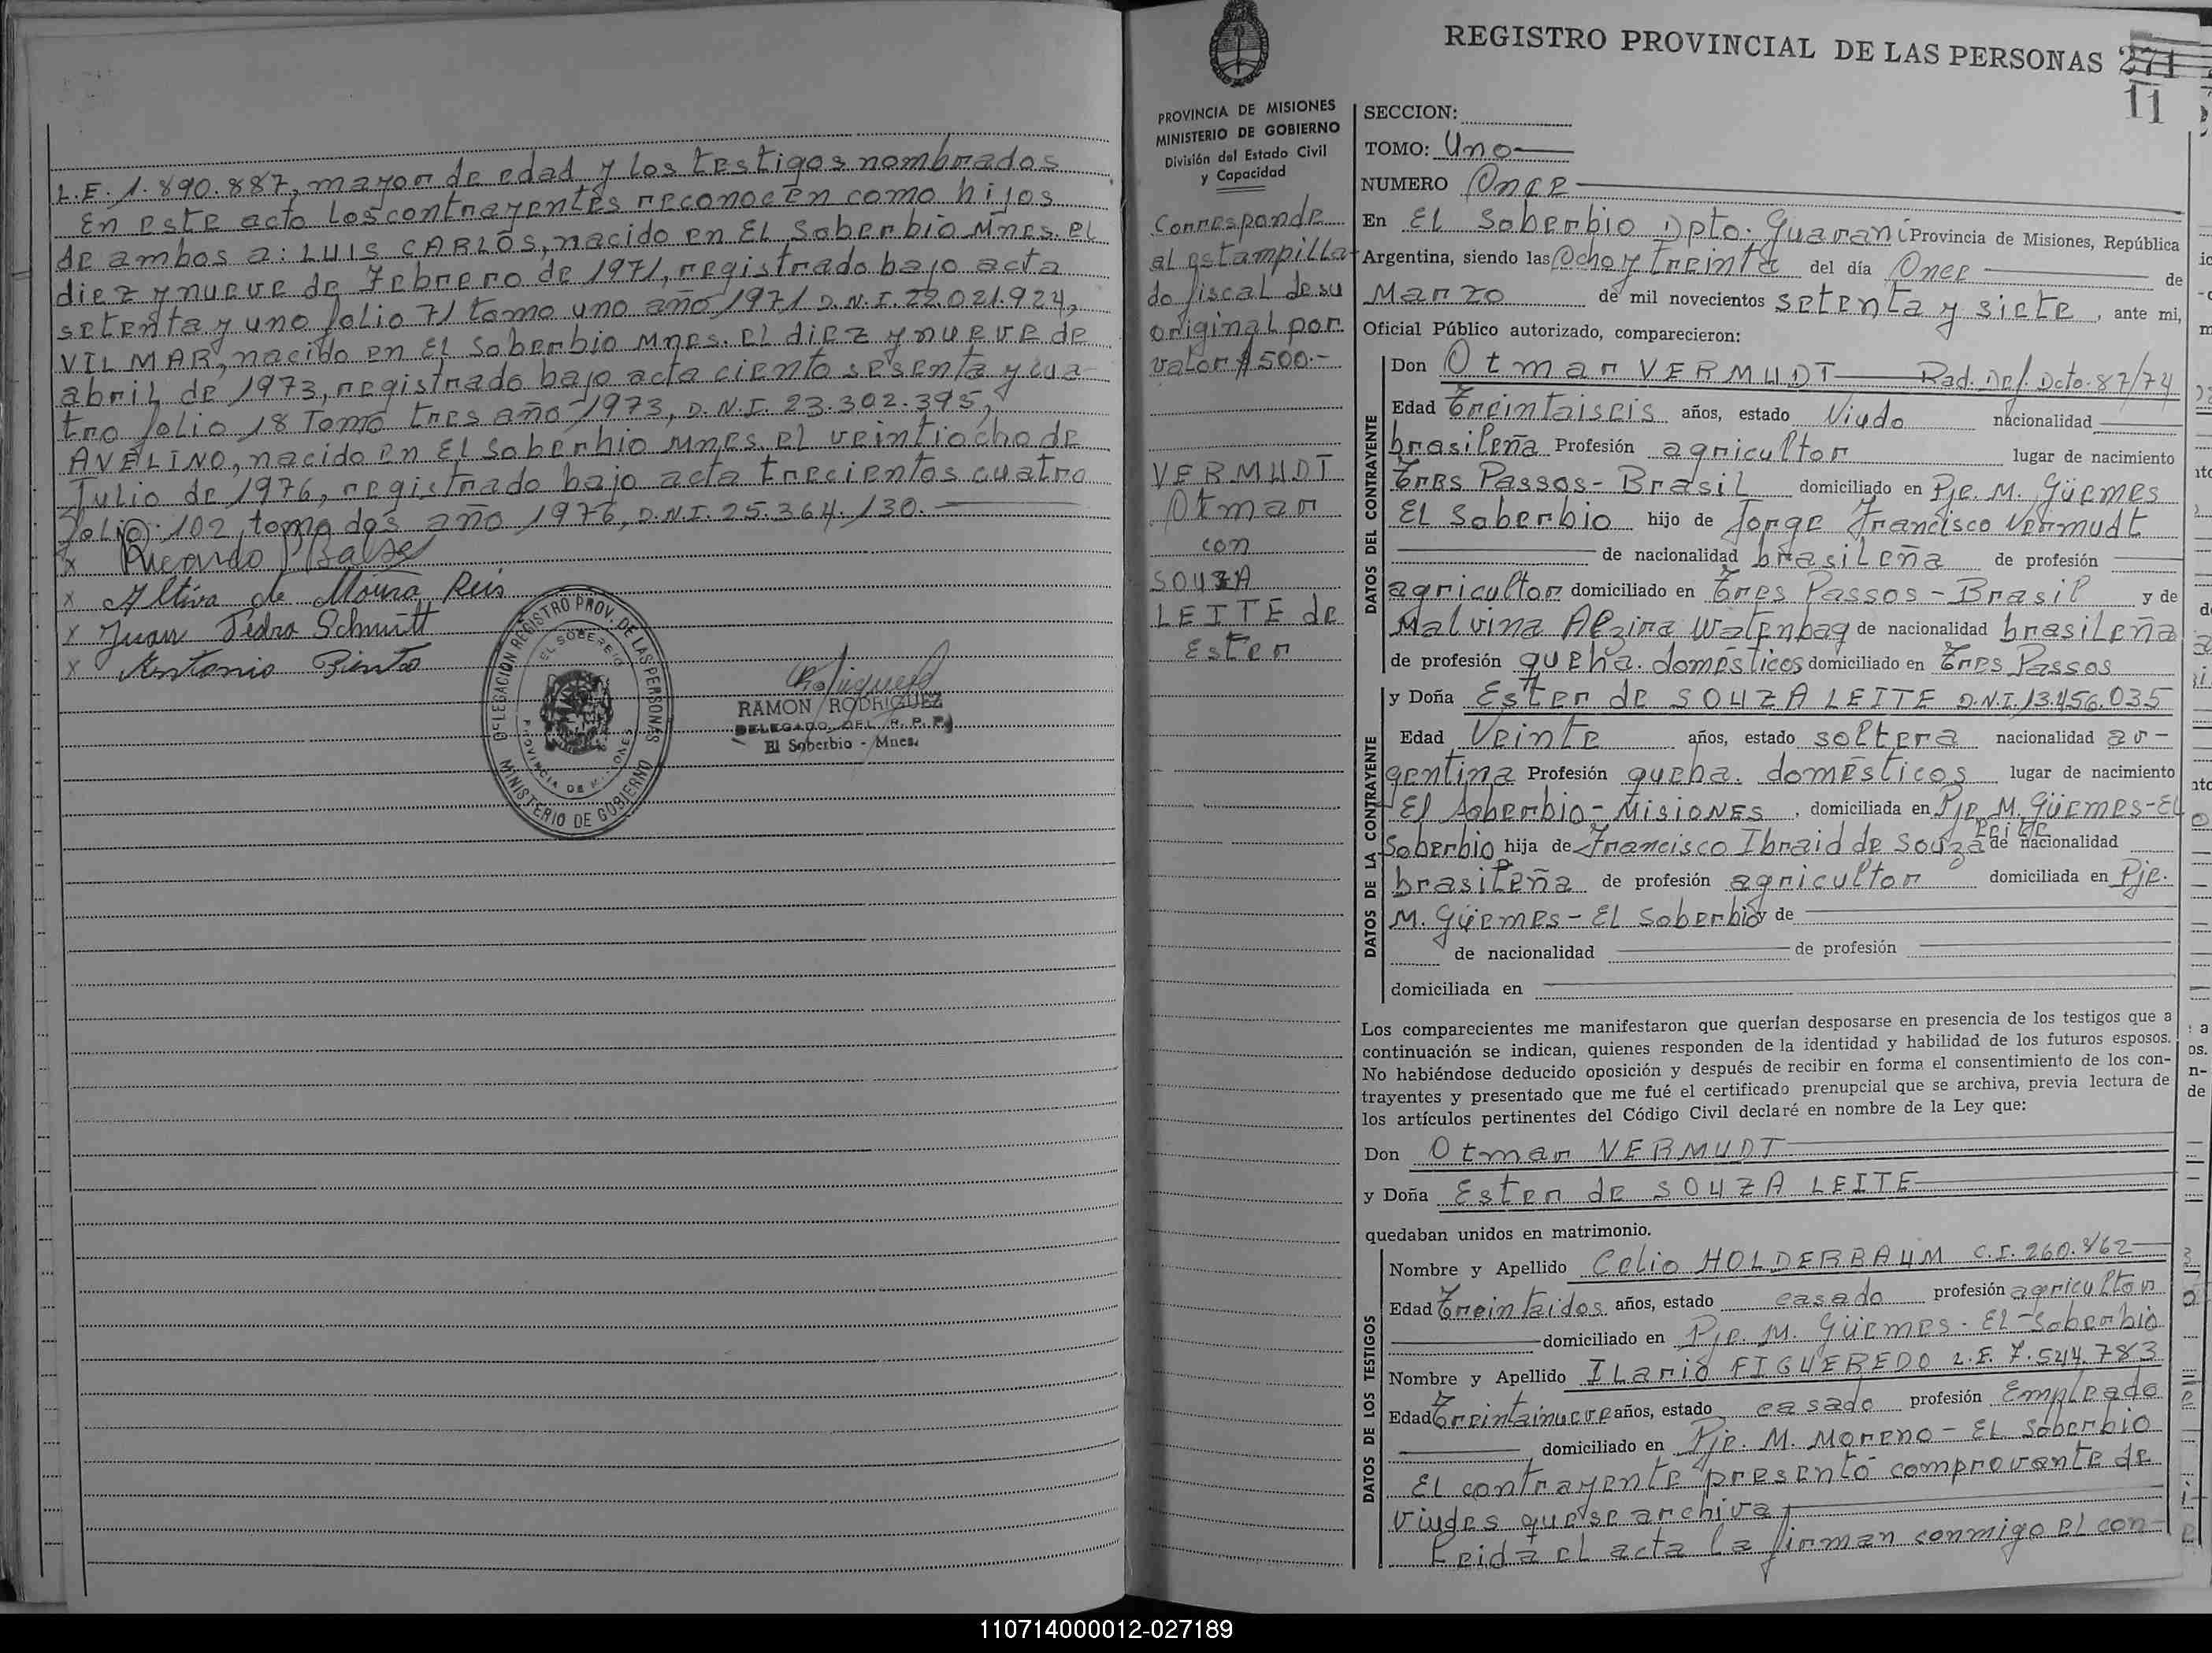 L.E. 1.890.887, mayor de edad y los testigos nombrados
En este acto los contrayentes reconocen como hijos
de ambos a: LUIS CARLOS, nacido en El Soberbio Mnes. el
diez y nueve de Febrero de 1971, registrado bajo acta
setenta y uno folio 71 tomo uno año 1971 D.N.I. 22.021.924,
VILMAR, nacido en El Soberbio Mnes. el diez y nueve de
abril de 1973, registrado bajo acta ciento sesenta y cua-
tro folio 18 Tomo tres año 1973, D.N.I. 23.302.395,
AVELINO, nacido en El Soberbio Mnes. el veintiocho de
Julio de 1976, registrado bajo acta trecientos cuatro
folio 102 tomo dos año 1976, D.N.I. 25.364.130.
x Ricardo
x Altiva de Moura Reis
x Juan Pedro Schmitt
x Antonio Pinto
DELEGACION REGISTRO PROV. DE LAS PERSONAS
EL SOBERBIO
PROVINCIA DE MISIONES
MINISTERIO DE GOBIERNO
RAMON RODRIGUEZ
DELEGADO DEL R. P. P.
El Soberbio - Mnes.
PROVINCIA DE MISIONES
MINISTERIO DE GOBIERNO
División del Estado Civil
y Capacidad
Corresponde
al estampilla-
do fiscal de su
original por
valor $ 500.-
VERMUDT
Otmar
con
SOUZA
LEITE de
Ester
REGISTRO PROVINCIAL DE LAS PERSONAS 271
11
SECCION:
TOMO: Uno
NUMERO Once
En El Soberbio Dpto. Guaraní Provincia de Misiones, República
Argentina, siendo las Ocho y treinta del día Once de
Marzo de mil novecientos setenta y siete, ante mi,
Oficial Público autorizado, comparecieron:
DATOS DEL CONTRAYENTE
Don Otmar VERMUDT Rad. Def. Dcto. 87/74
Edad Treintaiseis años, estado Viudo nacionalidad
brasileña Profesión agricultor lugar de nacimiento
Tres Passos - Brasil domiciliado en Pje. M. Güemes
El Soberbio hijo de Jorge Francisco Vermudt
de nacionalidad brasileña de profesión
agricultor domiciliado en Tres Passos - Brasil y de
Malvina Alzira Watenbag de nacionalidad brasileña
de profesión queha. domésticos domiciliado en Tres Passos
DATOS DE LA CONTRAYENTE
y Doña Ester de SOUZA LEITE D.N.I. 13.456.035
Edad Veinte años, estado soltera nacionalidad ar-
gentina Profesión queha. domésticos lugar de nacimiento
El Soberbio - Misiones, domiciliada en Pje M. Güemes - El
Leite
Soberbio hija de Francisco Ibraid de Souza de nacionalidad
brasileña de profesión agricultor domiciliada en Pje.
M. Güemes - El Soberbio y de
de nacionalidad de profesión
domiciliada en
Los comparecientes me manifestaron que querían desposarse en presencia de los testigos que a
continuación se indican, quienes responden de la identidad y habilidad de los futuros esposos.
No habiéndose deducido oposición y después de recibir en forma el consentimiento de los con-
trayentes y presentado que me fué el certificado prenupcial que se archiva, previa lectura de
los artículos pertinentes del Código Civil declaré en nombre de la Ley que:
Don Otmar VERMUDT
y Doña Ester de SOUZA LEITE
quedaban unidos en matrimonio.
DATOS DE LOS TESTIGOS
Nombre y Apellido Celio HOLDERBAUM C.I. 260.862
Edad Treintaidos años, estado casado profesión agricultor
domiciliado en Pje. M. Güemes - El Soberbio
Nombre y Apellido ILario FIGUEREDO L.E. 7.544.783
Edad Treintainueve años, estado casado profesión Empleado
domiciliado en Pje. M. Moreno - El Soberbio
El contrayente presentó comprovante de
viudes que se archiva
Leida el acta la firman conmigo el con-
110714000012-027189